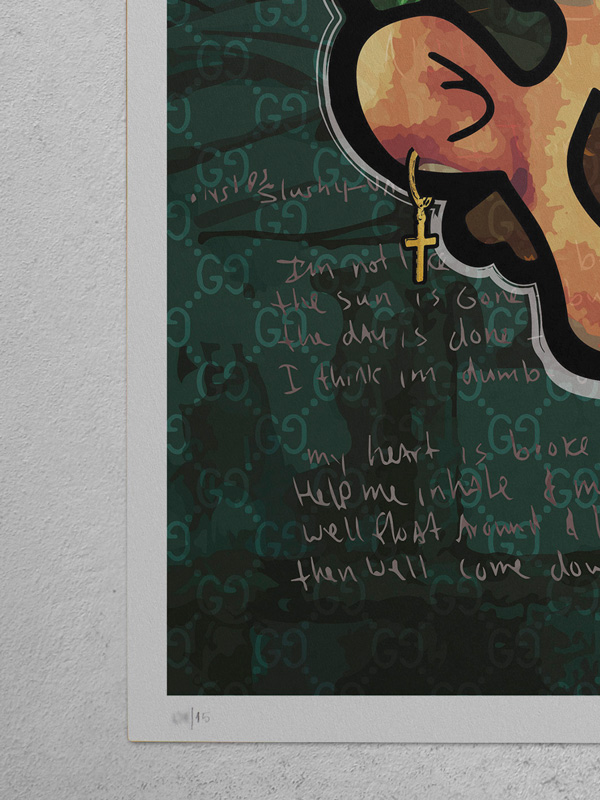 Im not
the sun is Gone
the day is done
I think im dumb
my heart is broke
Help me inhale &
well float Around &
then well come
/15